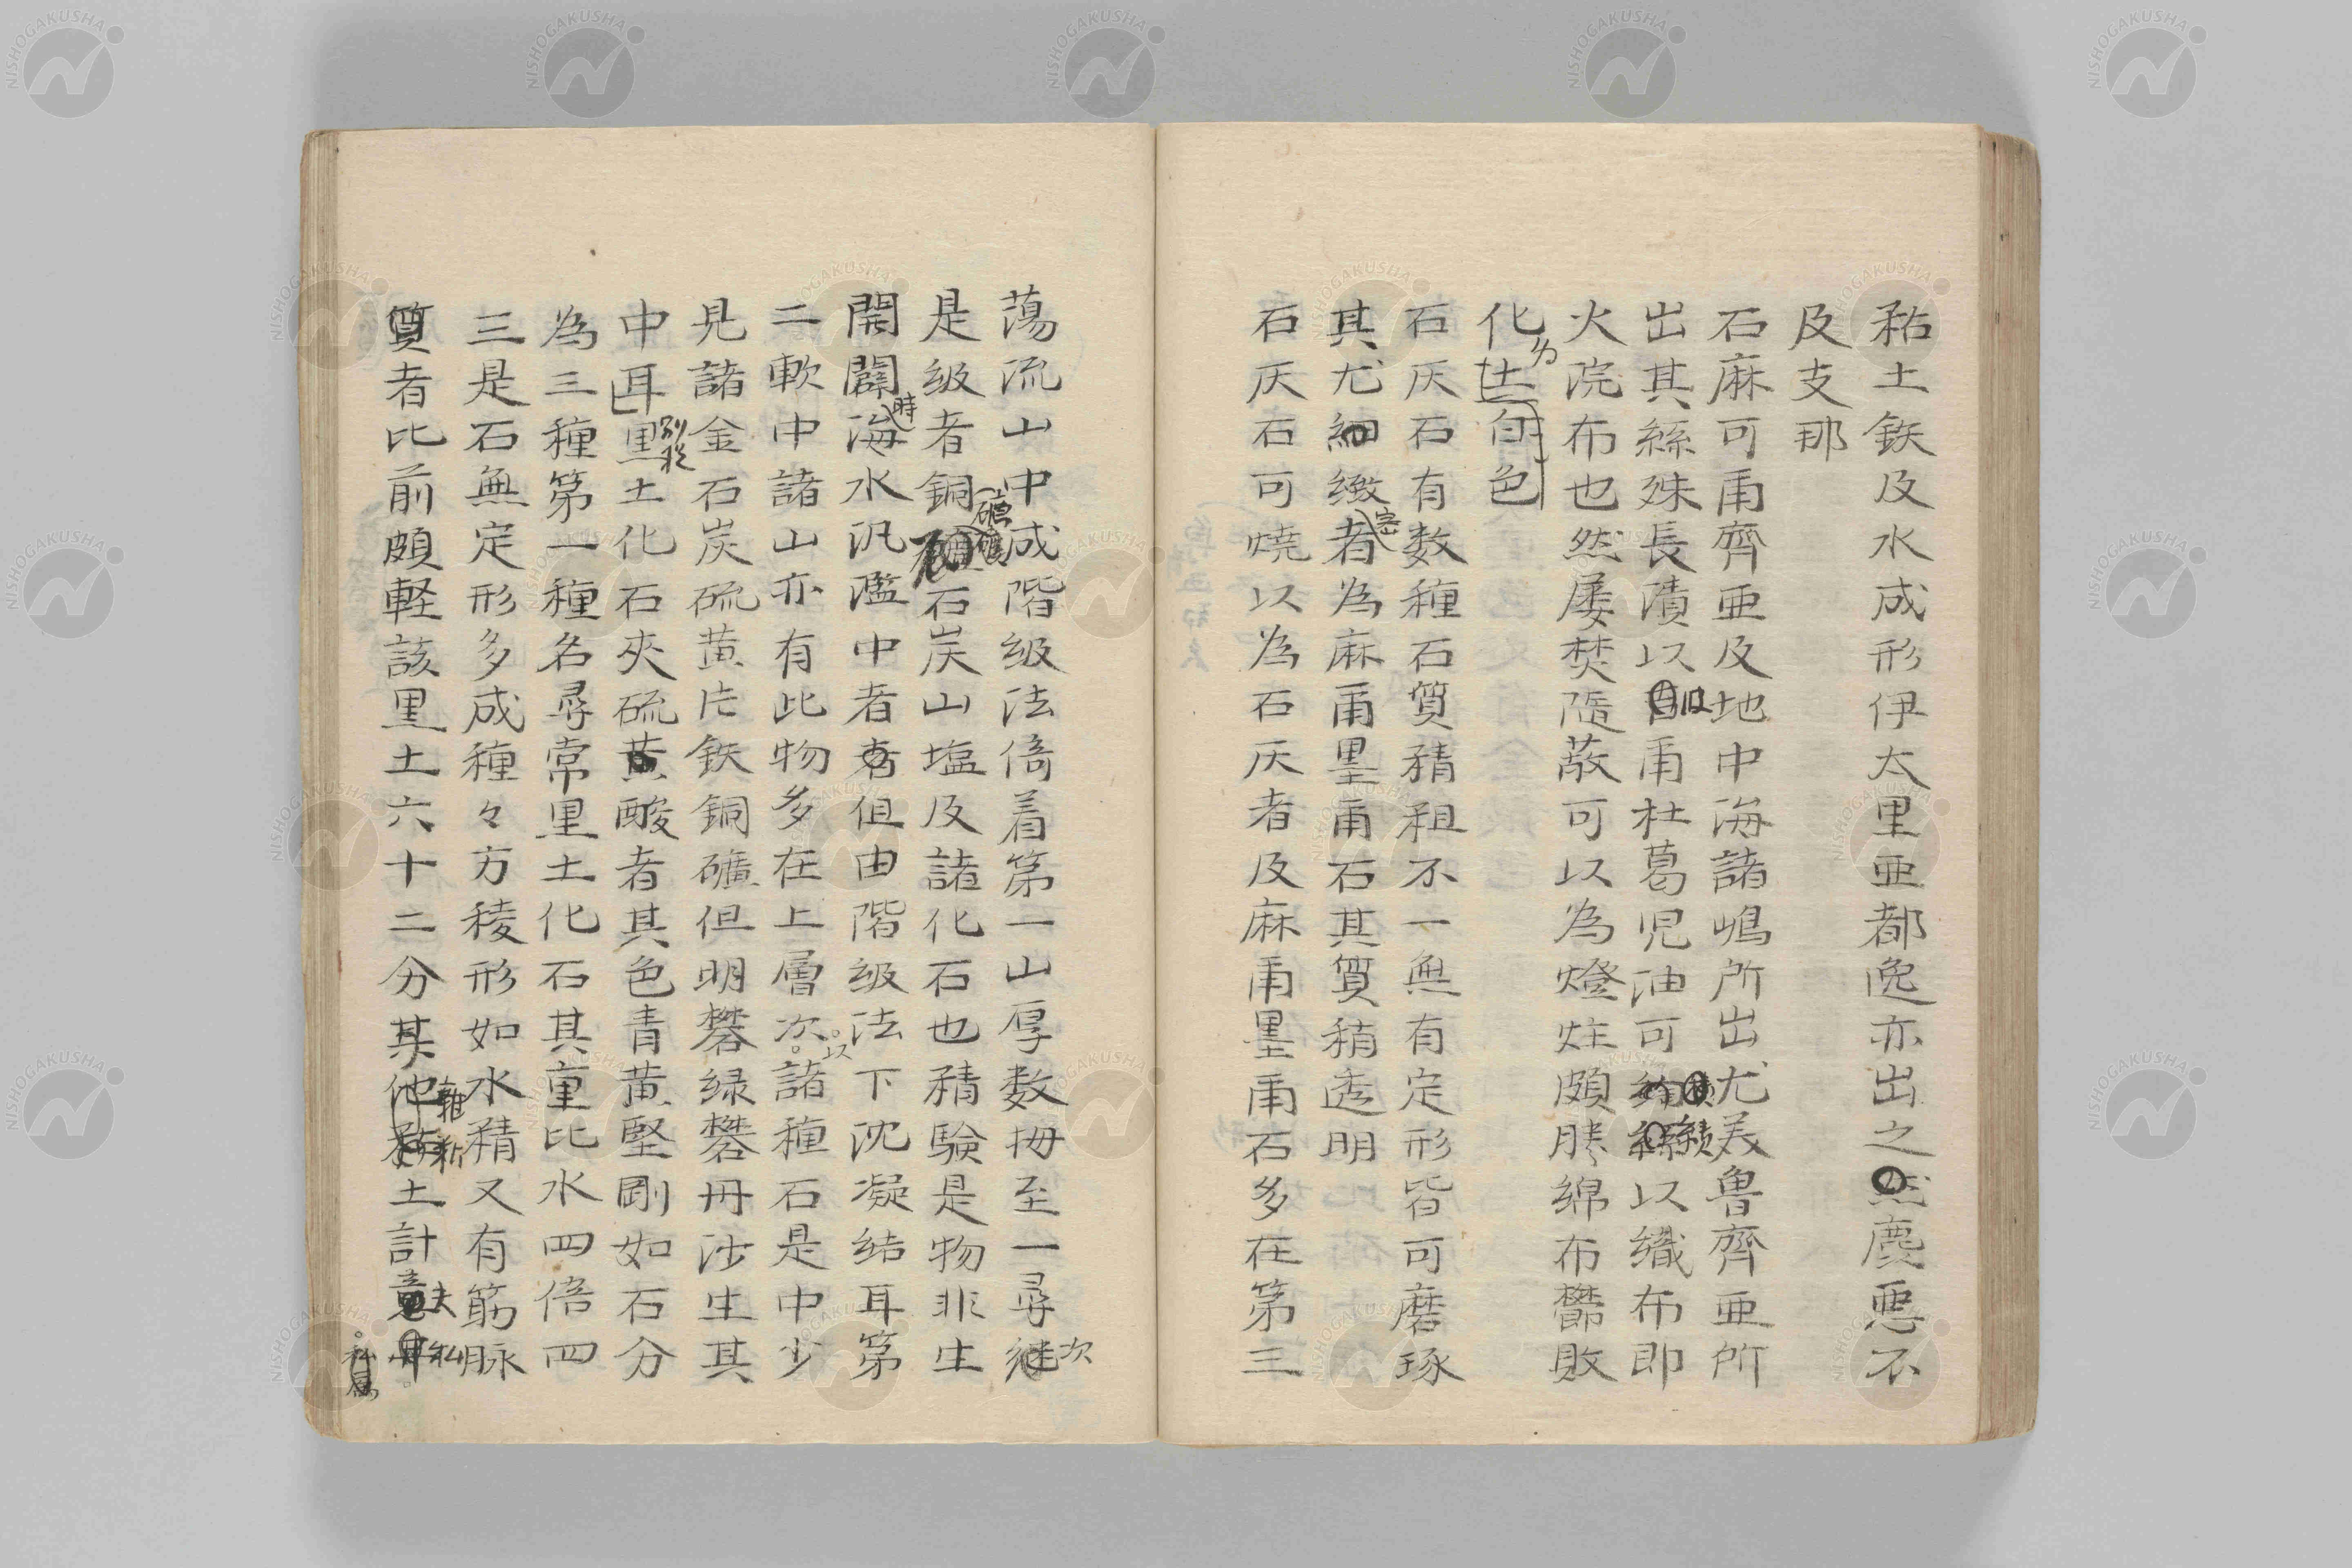 粘土鉄及水成形伊太里亜都逸亦出之然麁悪不
及支那
石麻可甫齊亜及地中海諸嶋所出尤美魯齊亜所
出其絲殊長漬以甫杜葛児油可績以織布即
火浣布也然屡焚隨蔽可以為燈炷頗勝綿布欝敗
化土白色
石灰石有数種石質精粗不一無有定形皆可磨琢
其尤細緻密者為麻甫墨甫石其質稍透明
石灰石可焼以為石灰者及麻甫墨甫石多在第三
蕩流山中成階級法倚着第一山厚数拇至一尋次
是級者銅礦石炭山塩及諸化石也精験是物非生
開闢時海水汎濫中者但由階級法下沈凝结耳第
二軟中諸山亦有此物多在上層次以諸種石是中少
見諸金石炭硫黄片鉄銅礦但明礬绿礬丹沙生其
中耳黒土化石夾硫黄酸者其色青黄堅剛如石分
為三種第一種名尋常黒土化石其重比水四倍四
三是石無定形多成種々方稜形如水精又有筋脉
質者比前頗軽該黒土六十二分其他雜土計